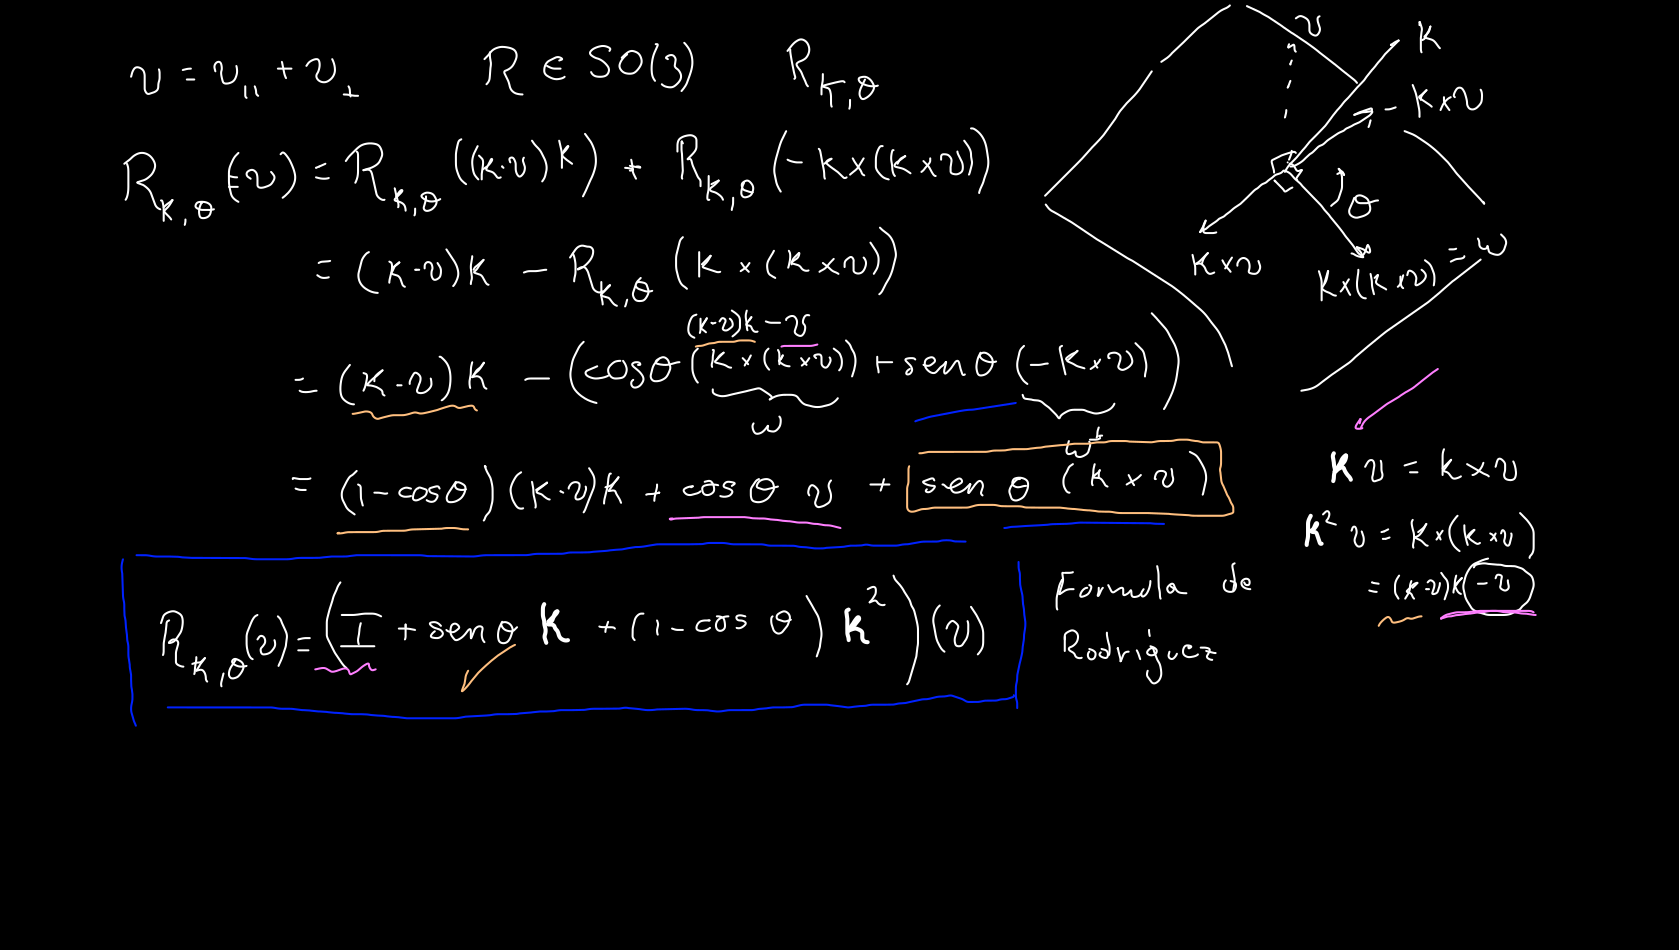 v = v₁₁ + v⊥ R ∈ SO(3) R_{K,θ}
R_{K,θ}(v) = R_{K,θ}((K·v)K) + R_{K,θ}(-K×(K×v))
= (K·v)K - R_{K,θ}(K×(K×v))
(K·v)K - v
= (K·v)K - (cosθ(K×(K×v)) + senθ(-K×v))
w w⊥
= (1-cosθ)(K·v)K + cosθ v + senθ(K×v)
R_{K,θ}(v) = (I + senθ K + (1-cosθ)K²)(v)
Formula de
Rodriguez
v
K
-K×v
θ
K×v
K×(K×v) = w
K v = K×v
K² v = K×(K×v)
= (K·v)K - v